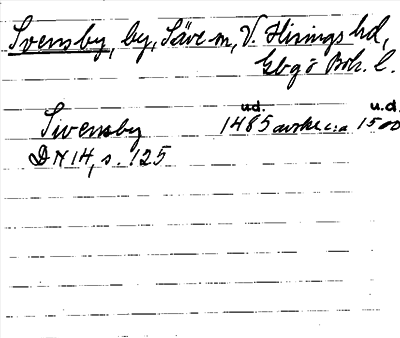 Svensby, by, Säve sn, V. Hisings hd,
Gbgs o Boh. l.
ud. u.d.
Sivensby 1485 avskr. c:a 1500
DN 14, s. 125